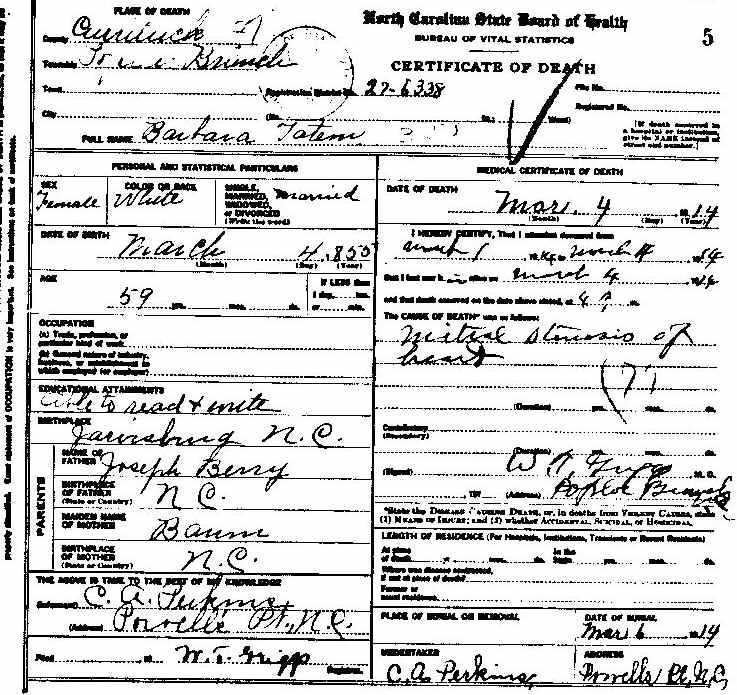 PLACE OF DEATH
North Carolina State Board of Health
BUREAU OF VITAL STATISTICS
5
County Currituck
CERTIFICATE OF DEATH
Township Branch
Town
Registration District No. 27-6338
File No.
Registered No.
City
(No. St.; Ward)
[If death occurred in a hospital or institution, give its NAME instead of street and number.]
FULL NAME Barbara Tatem
PERSONAL AND STATISTICAL PARTICULARS
SEX Female
COLOR OR RACE White
SINGLE, MARRIED, WIDOWED, or DIVORCED (Write the word) Married
DATE OF BIRTH
March 4, 1855
(Month) (Day) (Year)
AGE
59 yrs. mos. ds.
IF LESS than 1 day, hrs. or min.
OCCUPATION
(a) Trade, profession, or particular kind of work
(b) General nature of industry, business, or establishment in which employed (or employer)
EDUCATIONAL ATTAINMENTS
Able to read & write
BIRTHPLACE
Jarvisburg N.C.
PARENTS
NAME OF FATHER Joseph Berry
BIRTHPLACE OF FATHER (State or Country) N C.
MAIDEN NAME OF MOTHER Baum
BIRTHPLACE OF MOTHER (State or Country) N.C.
THE ABOVE IS TRUE TO THE BEST OF MY KNOWLEDGE
(Informant) C. A. Perkins,
(Address) Powells Pt., N.C.
Filed , 191 W. T. Grigg
Registrar.
MEDICAL CERTIFICATE OF DEATH
DATE OF DEATH
Mar. 4 1914
(Month) (Day) (Year)
I HEREBY CERTIFY, That I attended deceased from
march 1 1914 to march 4 1914
that I last saw h alive on march 4 1914
and that death occurred on the date above stated, at 4 m.
The CAUSE OF DEATH* was as follows:
Mitral stenosis of
heart
(?)
(Duration) yrs. mos. ds.
Contributory
(Secondary)
(Duration) yrs. mos. ds.
(Signed) W. T. Grigg M. D.
191 (Address) Poplar Branch
*State the DISEASE CAUSING DEATH, or, in deaths from VIOLENT CAUSES, state (1) MEANS OF INJURY; and (2) whether ACCIDENTAL, SUICIDAL, or HOMICIDAL.
LENGTH OF RESIDENCE (For Hospitals, Institutions, Transients or Recent Residents)
At place of death yrs. mos. ds. In the State yrs. mos. ds.
Where was disease contracted, if not at place of death?
Former or usual residence
PLACE OF BURIAL OR REMOVAL
DATE OF BURIAL
Mar 6 1914
UNDERTAKER
C. A. Perkins,
ADDRESS
Powells Pt, N.C,